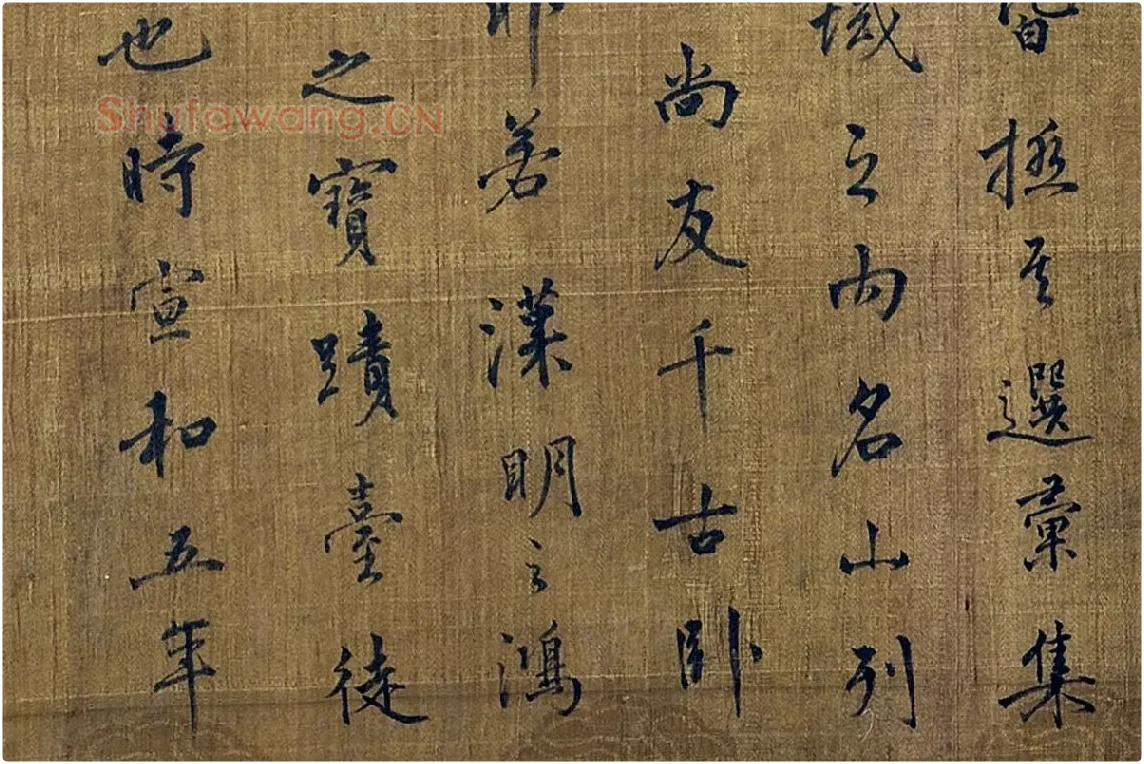 極其選彙集
域之内名山列
尚友千古卧
若漢明之鴻
之寶蹟臺徒
也時宣和五年
Shufawang.CN